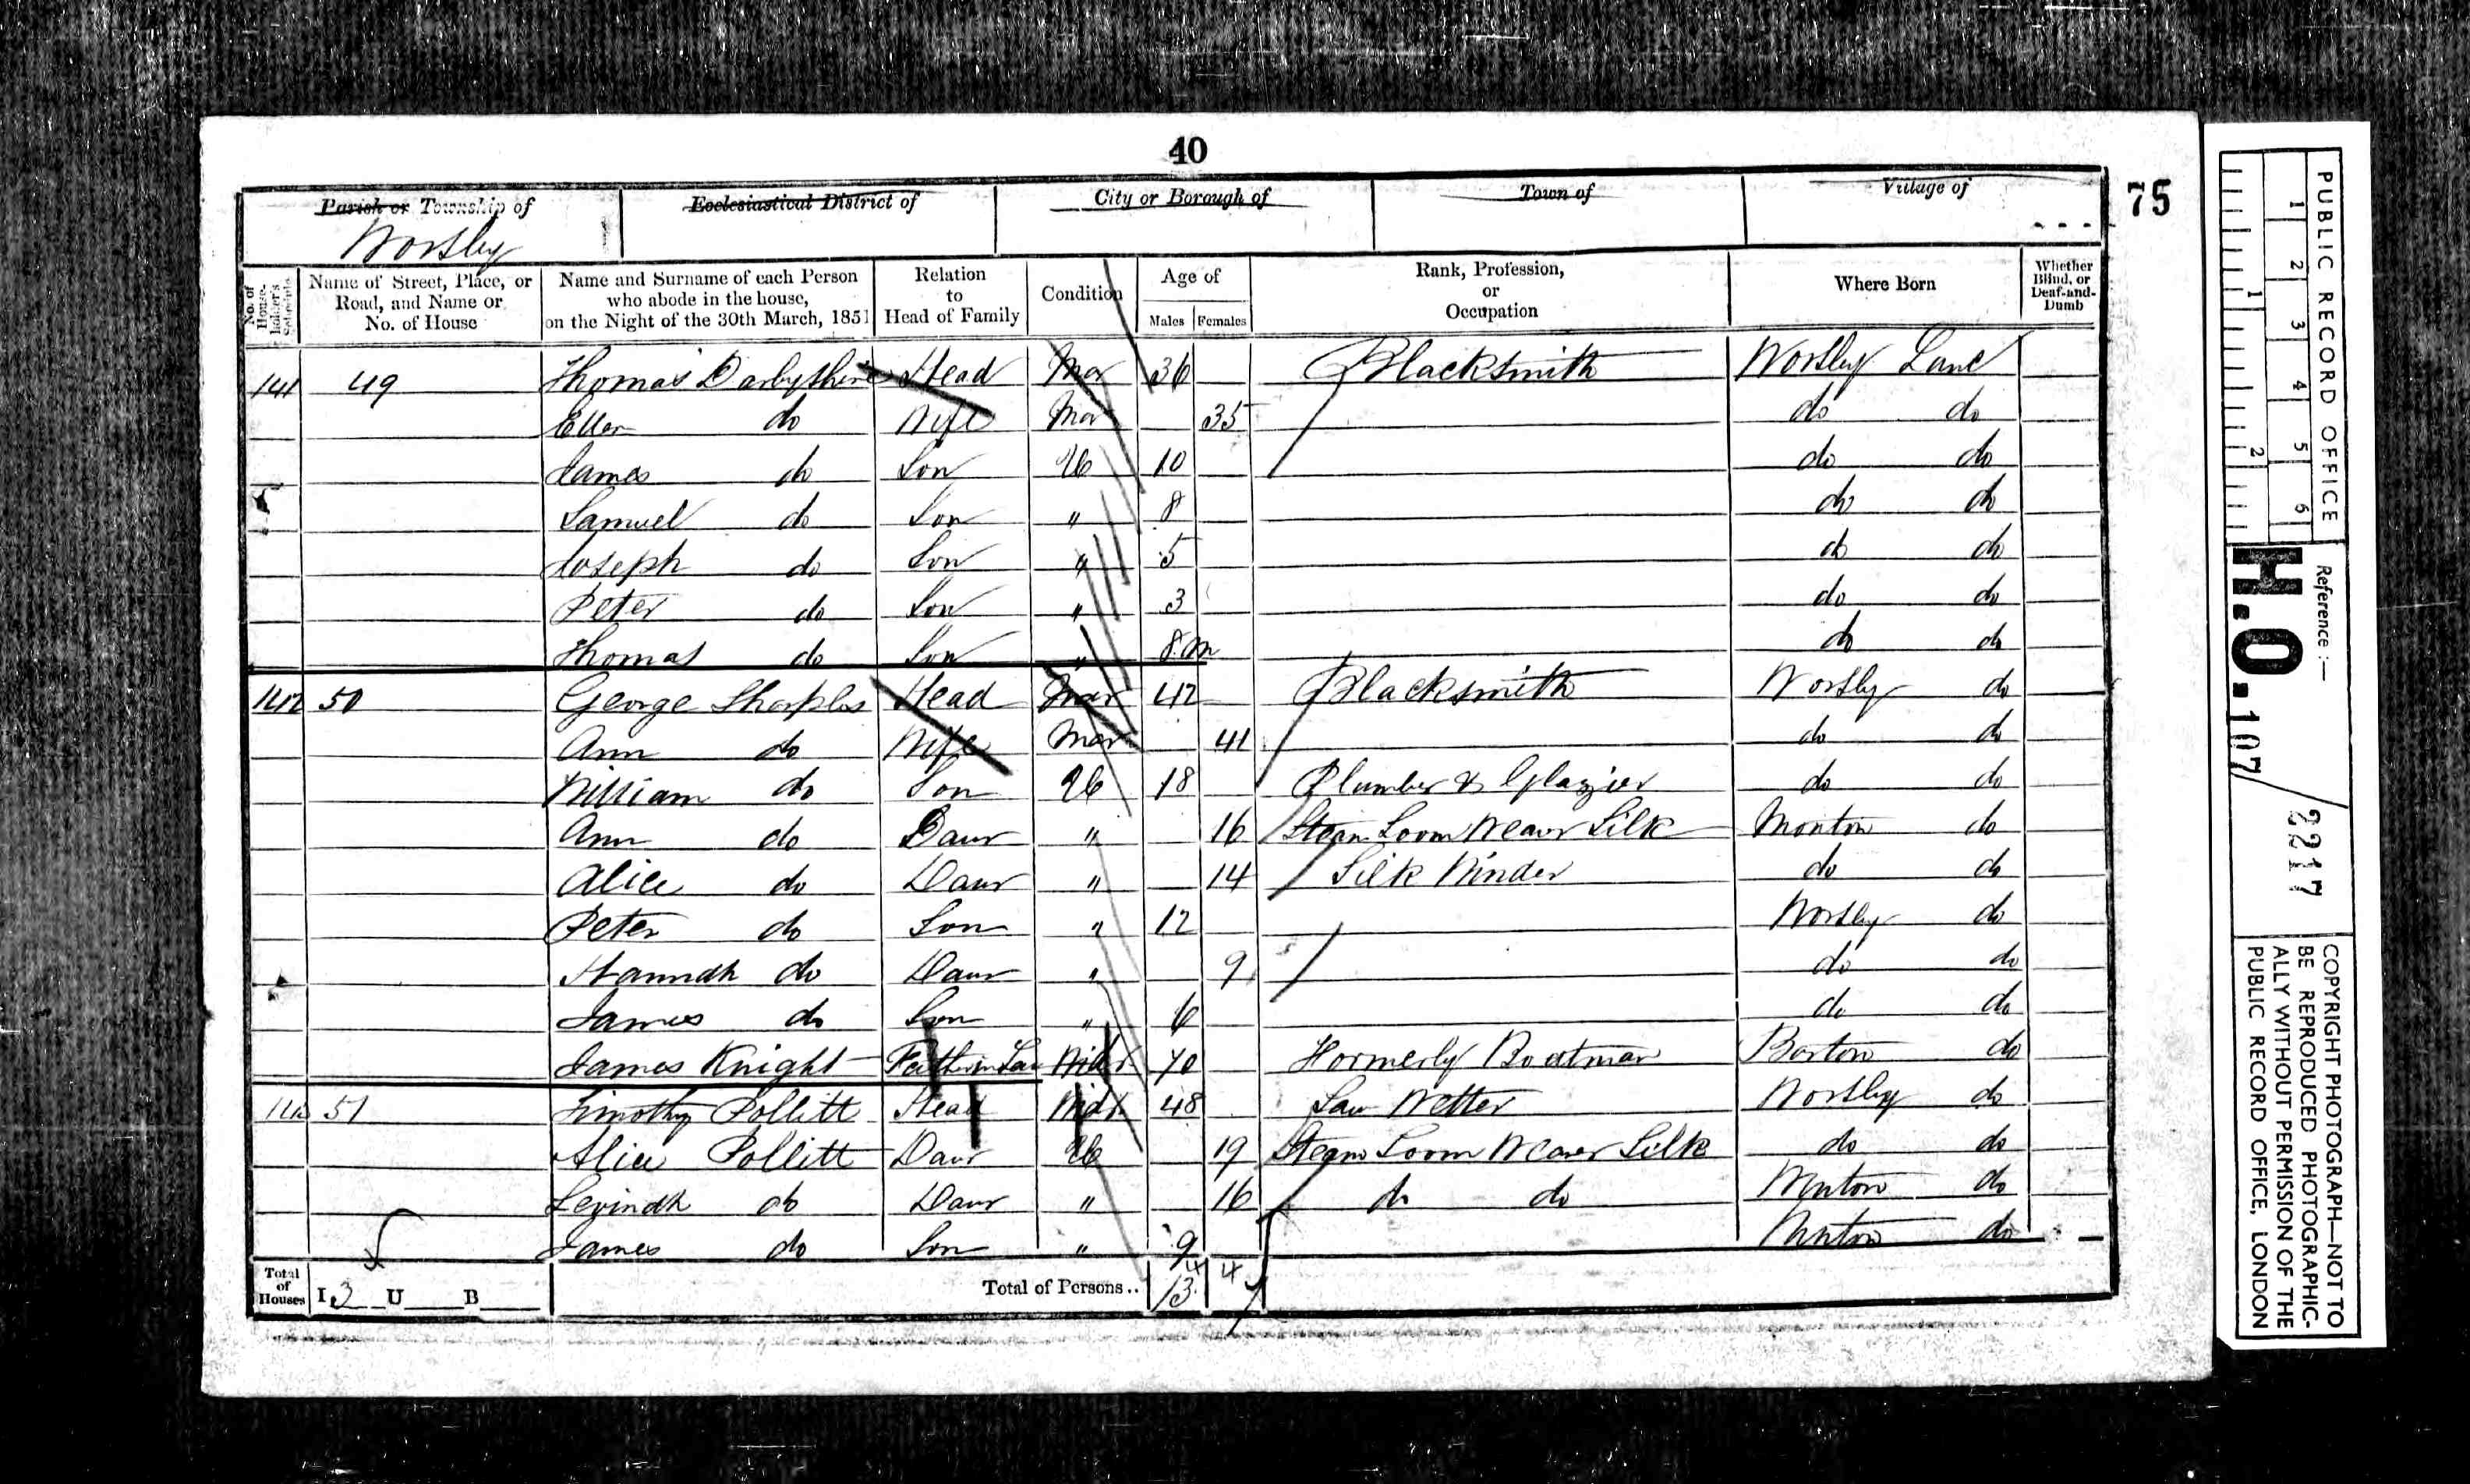 40
75
Parish or Township of Ecclesiastical District of City or Borough of Town of Village of
Worsley
No. of House-holder's Schedule Name of Street, Place, or Road, and Name or No. of House Name and Surname of each Person who abode in the house, on the Night of the 30th March, 1851 Relation to Head of Family Condition Age of Males Females Rank, Profession, or Occupation Where Born Whether Blind, or Deaf-and-Dumb
141 49 Thomas Darbyshire Head Mar 36 Blacksmith Worsley Lanc
Ellen do Wife Mar 35 do do
James do Son U 10 do do
Samuel do Son " 8 do do
Joseph do Son " 5 do do
Peter do Son " 3 do do
Thomas do Son " 8 m do do
142 50 George Sharples Head Mar 42 Blacksmith Worsley do
Ann do Wife Mar 41 do do
William do Son U 18 Plumber & Glazier do do
Ann do Daur " 16 Steam Loom Weaver Silk Monton do
Alice do Daur " 14 Silk Winder do do
Peter do Son " 12 Worsley do
Hannah do Daur " 9 do do
James do Son " 6 do do
James Knight Father in Law Widr 70 Formerly Boatman Barton do
51 Timothy Pollitt Head Widr 48 Worsley do
Alice Pollitt Daur U 19 Steam Loom Weaver Silk do do
do Daur " 16 do do Monton do
James do Son " 9 Monton do
Total of Houses I 3 U B Total of Persons.. 13 4
PUBLIC RECORD OFFICE
1 2 3 4 5 6
1 2
Reference :-
H.O. 107/2217
COPYRIGHT PHOTOGRAPH—NOT TO
BE REPRODUCED PHOTOGRAPHIC-
ALLY WITHOUT PERMISSION OF THE
PUBLIC RECORD OFFICE, LONDON